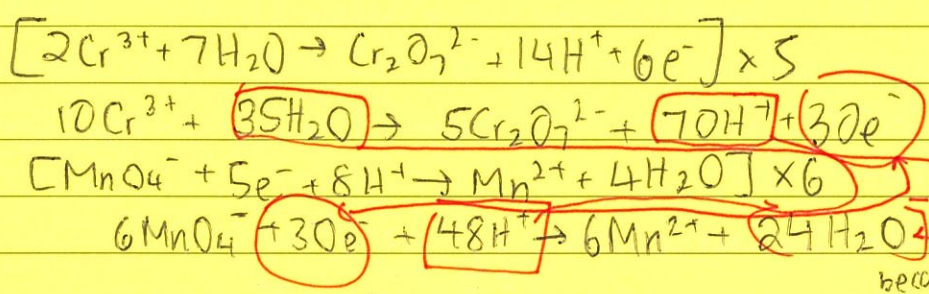 [2Cr³⁺ + 7H₂O → Cr₂O₇²⁻ + 14H⁺ + 6e⁻] × 5
10Cr³⁺ + 35H₂O → 5Cr₂O₇²⁻ + 70H⁺ + 30e⁻
[MnO₄⁻ + 5e⁻ + 8H⁺ → Mn²⁺ + 4H₂O] × 6
6MnO₄⁻ + 30e⁻ + 48H⁺ → 6Mn²⁺ + 24H₂O